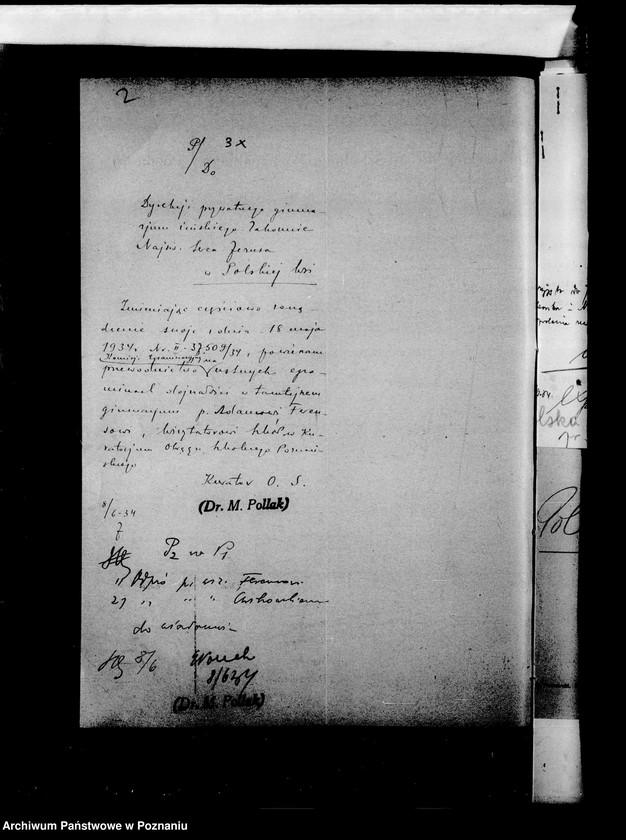 2
P/ 3 x
Do
Dyrekcji prywatnego gimna-
zjum żeńskiego Zakonnic
Najśw. Serca Jezusa
w Polskiej Wsi
Zmieniając częściowo zarzą-
dzenie swoje z dnia 18 maja
1934 r. Nr. II - 37509/34, powierzam
Komisji Egzaminacyjnej na
przewodnictwo ustnych egza-
minach dojrzałości w tamtejszem
gimnazjum p. Adamowi Feren-
sowi, wizytatorowi szkół w Ku-
ratorjum Okręgu Szkolnego Poznań-
skiego
Kurator O. S.
(Dr. M. Pollak)
8/6-34
P2 w P1
1) Odpis p. wiz.
2) " " "
do wiadomości
8/6
8/6 34
(Dr. M. Pollak)
Pol
Archiwum Państwowe w Poznaniu